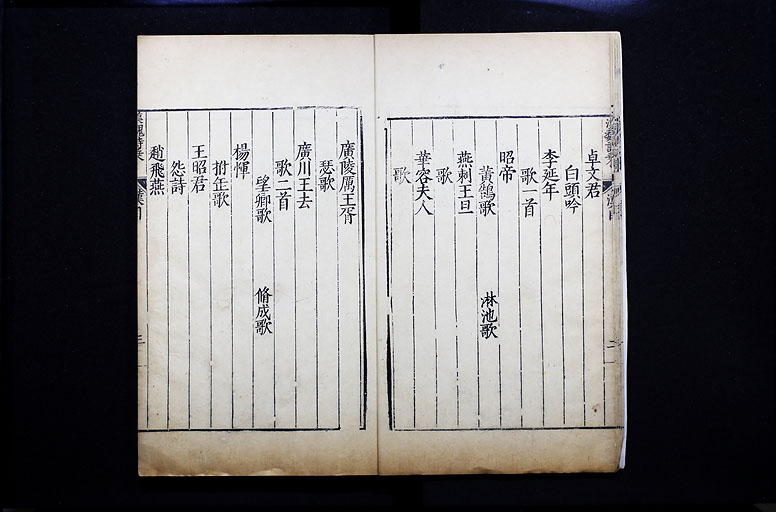 卓文君
白頭吟
李延年
歌一首
昭帝
黃鵠歌 淋池歌
燕剌王旦
歌
華容夫人
歌
廣陵厲王胥
瑟歌
廣川王去
歌二首
望卿歌 脩成歌
楊惲
拊缶歌
王昭君
怨詩
趙飛燕